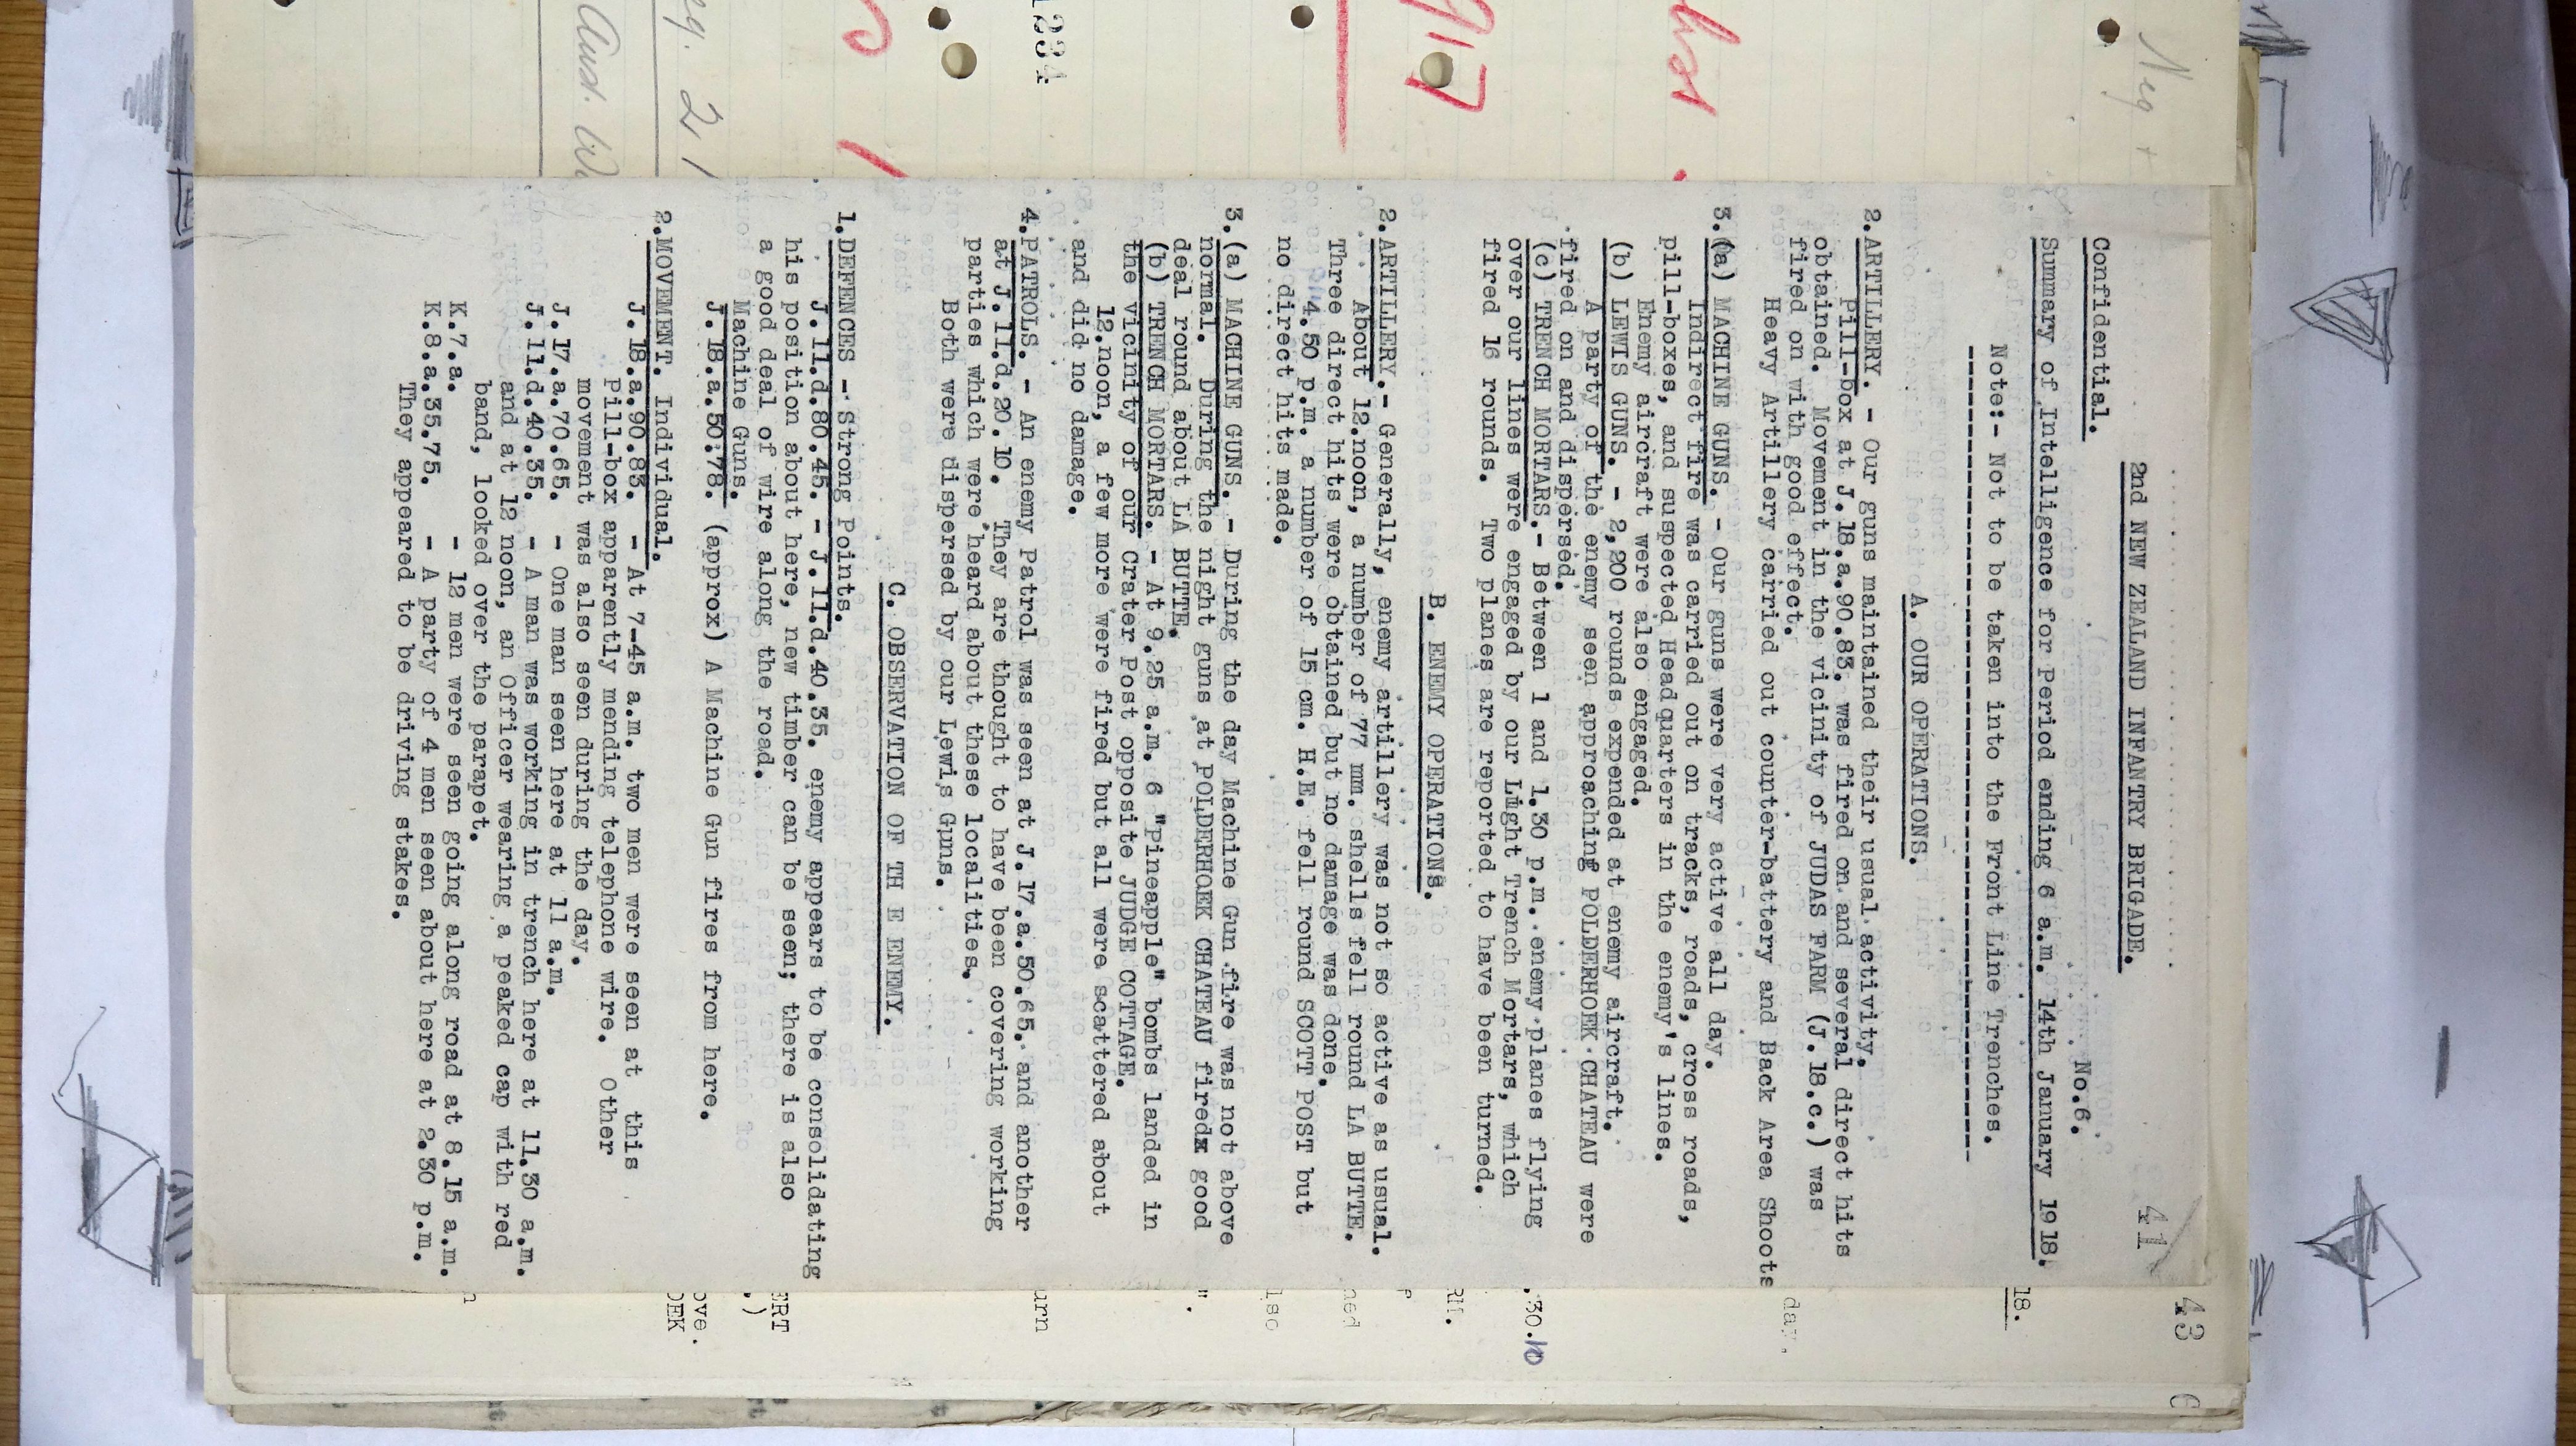 41
2nd NEW ZEALAND INFANTRY BRIGADE.
Confidential.
No.6.
Summary of Intelligence for Period ending 6 a.m. 14th January 1918.
Note:- Not to be taken into the Front Line Trenches.
A. OUR OPERATIONS.
2.ARTILLERY. - Our guns maintained their usual activity.
Pill-box at J.18.a.90.83. was fired on and several direct hits
obtained. Movement in the vicinity of JUDAS FARM (J.18.c.) was
fired on with good effect.
Heavy Artillery carried out counter-battery and Back Area Shoots
3.(a) MACHINE GUNS. - Our guns were very active all day.
Indirect fire was carried out on tracks, roads, cross roads,
pill-boxes, and suspected Headquarters in the enemy's lines.
Enemy aircraft were also engaged.
(b) LEWIS GUNS. - 2,200 rounds expended at enemy aircraft.
A party of the enemy seen approaching POLDERHOEK CHATEAU were
fired on and dispersed.
(c) TRENCH MORTARS.- Between 1 and 1.30 p.m. enemy planes flying
over our lines were engaged by our Light Trench Mortars, which
fired 16 rounds. Two planes are reported to have been turned.
B. ENEMY OPERATIONS.
2.ARTILLERY.- Generally, enemy artillery was not so active as usual.
About 12.noon, a number of 77 mm. shells fell round LA BUTTE.
Three direct hits were obtained but no damage was done.
4.50 p.m. a number of 15 cm. H.E. fell round SCOTT POST but
no direct hits made.
3.(a) MACHINE GUNS. - During the day Machine Gun fire was not above
normal. During the night guns at POLDERHOEK CHATEAU firedx good
deal round about LA BUTTE.
(b) TRENCH MORTARS. - At 9.25 a.m. 6 "Pineapple" bombs landed in
the vicinity of our Crater Post opposite JUDGE COTTAGE.
12.noon, a few more were fired but all were scattered about
and did no damage.
4.PATROLS. - An enemy Patrol was seen at J.17.a.50.65. and another
at J.11.d.20.10. They are thought to have been covering working
parties which were heard about these localities.
Both were dispersed by our Lewis Guns.
C. OBSERVATION OF TH E ENEMY.
1.DEFENCES - Strong Points.
J.11.d.80.45. - J.11.d.40.35. enemy appears to be consolidating
his position about here, new timber can be seen; there is also
a good deal of wire along the road.
Machine Guns.
J.18.a.50.78. (approx) A Machine Gun fires from here.
2.MOVEMENT. Individual.
J.18.a.90.83. - At 7-45 a.m. two men were seen at this
pill-box apparently mending telephone wire. Other
movement was also seen during the day.
J.17.a.70.65. - One man seen here at 11 a.m.
J.11.d.40.35. - A man was working in trench here at 11.30 a.m.
and at 12 noon, an Officer wearing a peaked cap with red
band, looked over the parapet.
K.7.a. - 12 men were seen going along road at 8.15 a.m.
K.8.a.35.75. - A party of 4 men seen about here at 2.30 p.m.
They appeared to be driving stakes.
Neg
917
1234
Aus. W
43
6
18.
day.
.30.10
RH.
ned
lso
".
urn
ERT
.)
ove.
DEK
n